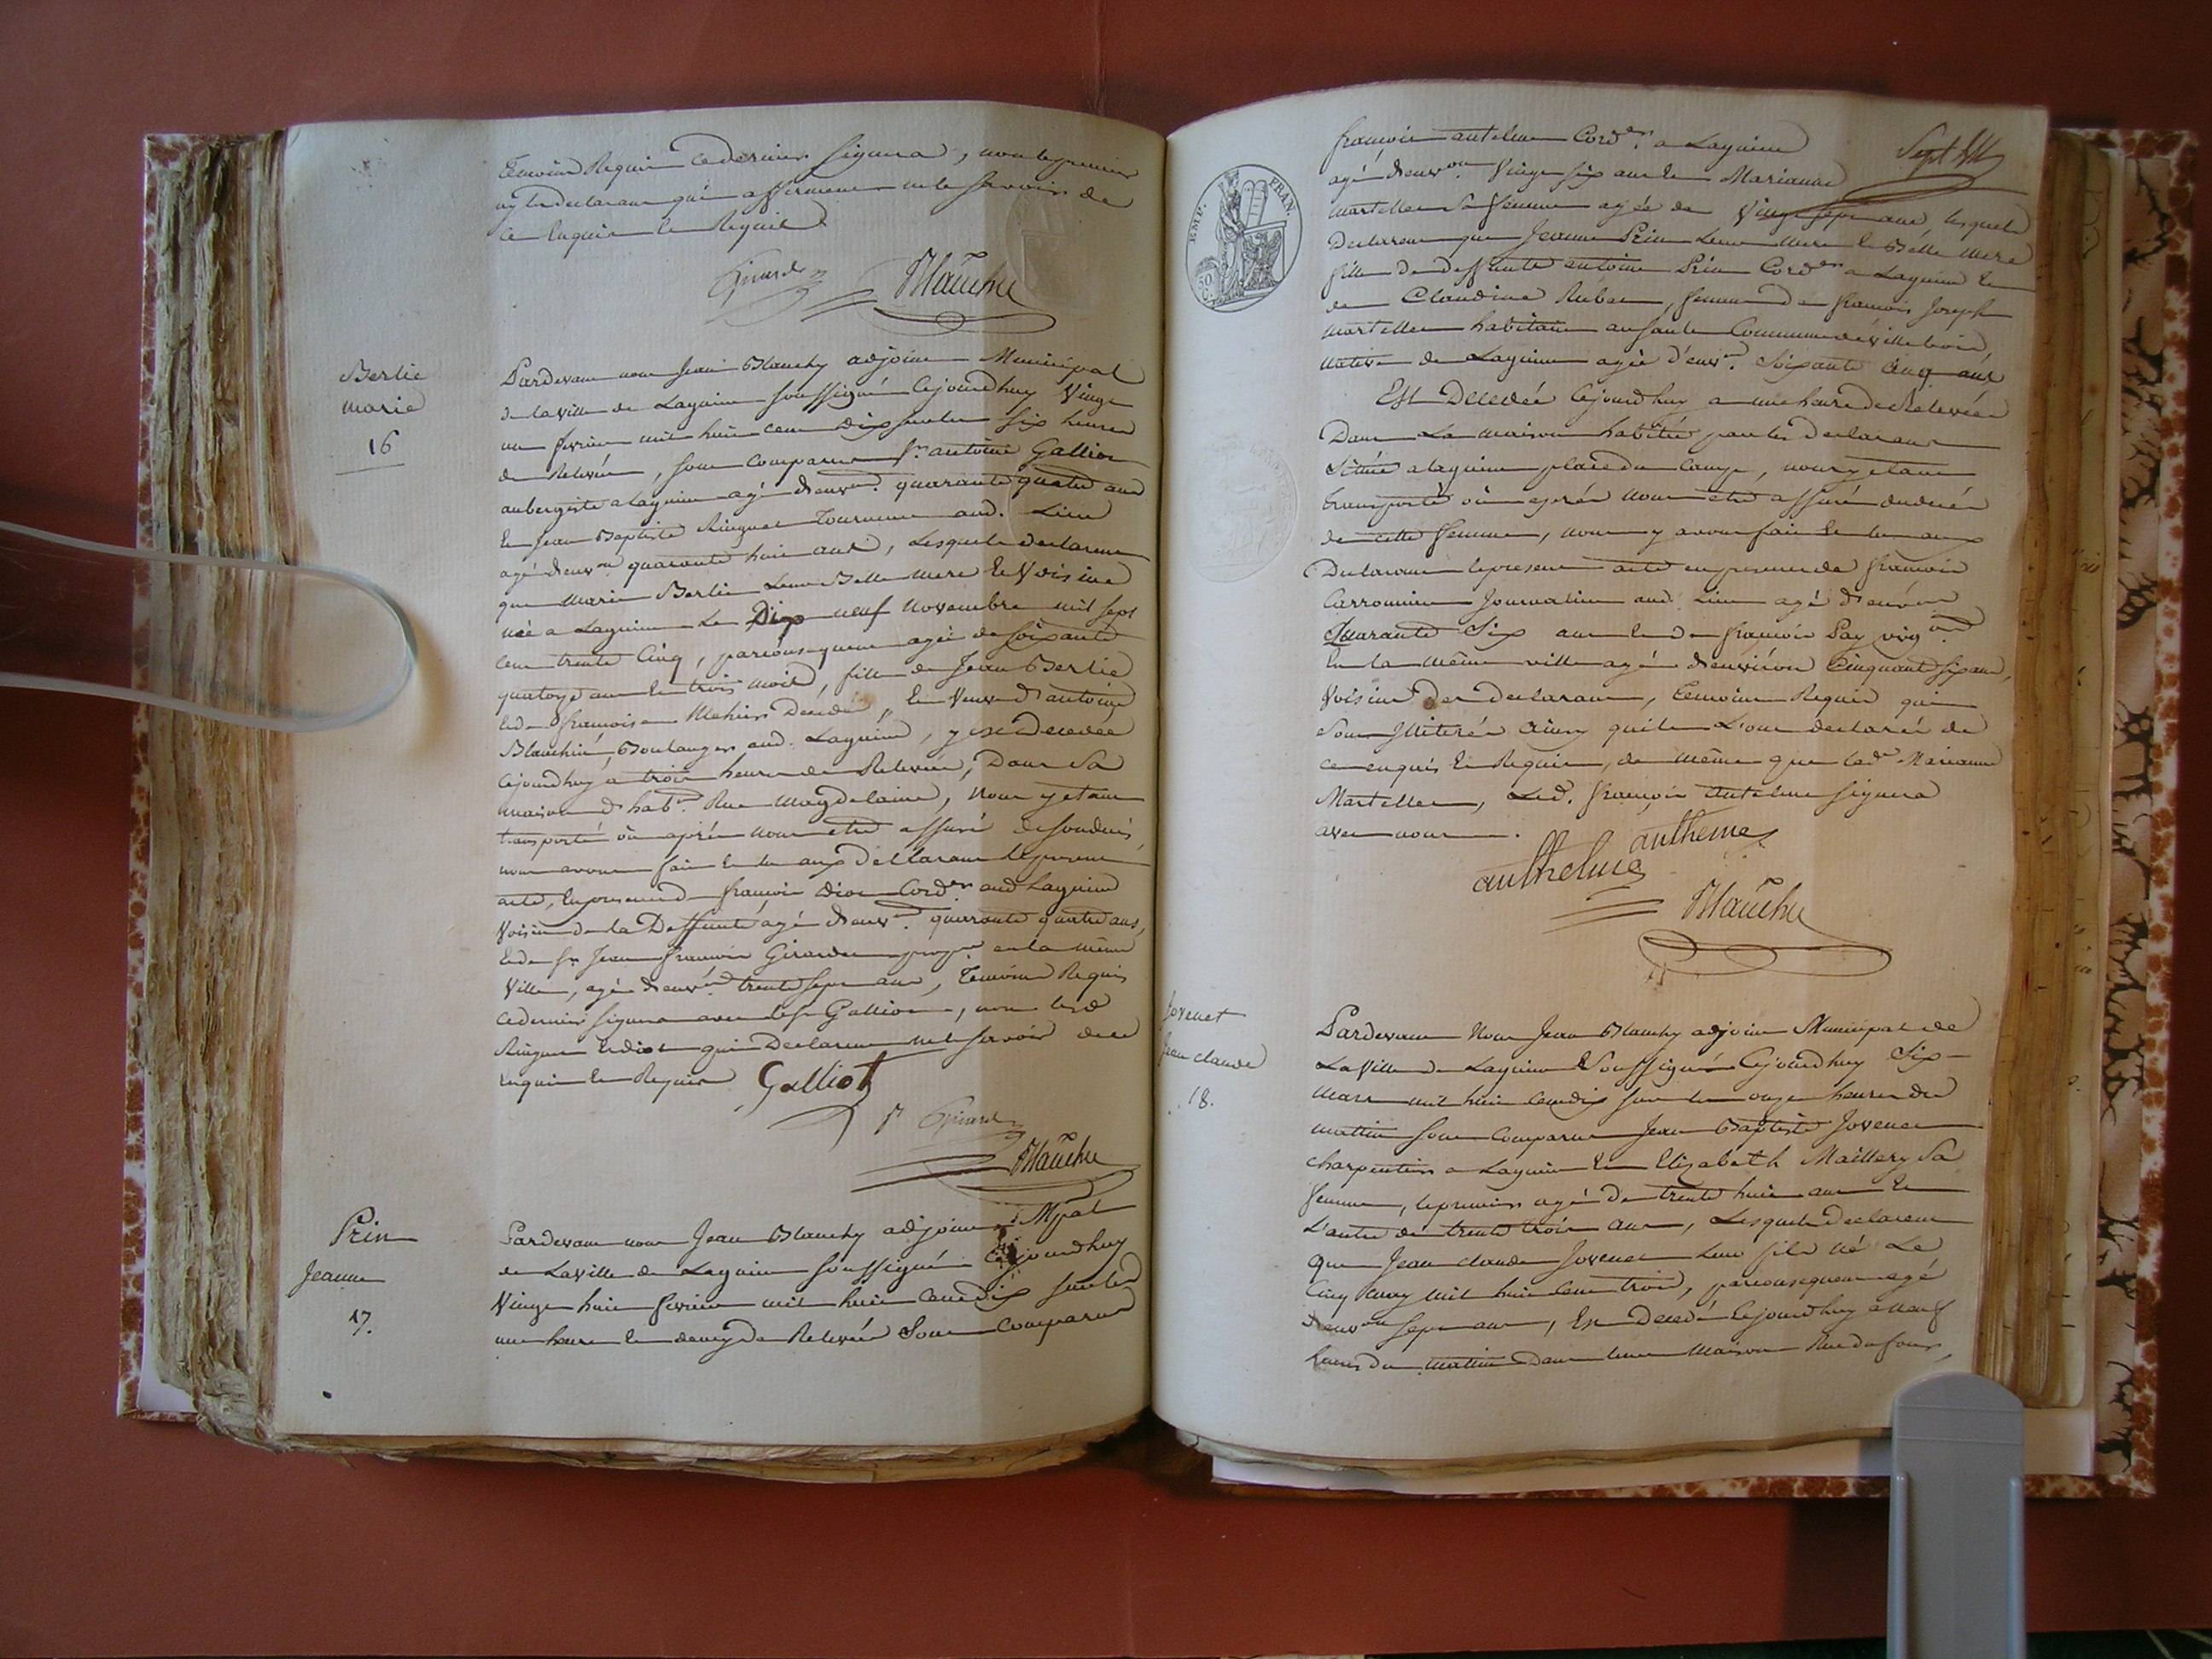 Temoins Requis ce dernier signera, non le premier
ny les declarants qui affirment ne le savoir de
ce Enquis et Requis
Girard
Blanchy
Berlie
marie
16
Pardevant nous Jean Blanchy adjoint Municipal
de la ville de Lagnieu soussigné Cejourdhuy Vingt
un fevrier mil huit cent dix sur les six heures
de Relevée, sont comparus Sr. antoine Galliot
aubergiste a Lagnieu agé denvon. quarante quatre ans
Et Jean Baptiste Ringuet Tourneur aud. Lieu
agé denvon quarante huit ans, Lesquels declarent
que Marie Berlie Leur Belle Mere Et Voisine
née a Lagnieu Le Dix neuf novembre mil sept
cent trente Cinq, par consequent agée de soixante
quatorze ans Et trois mois, fille de Jean Berlie
Et de francoise Decedés, Et Veuve d'antoine
Boulanger aud. Lagnieu, y est Decedée
Cejourdhuy a trois heures de Relevée, Dans Sa
maison d'habon. Rue Magdelaine, Nous y etant
transporté où après nous etre assuré de son decès,
nous avons fait Et lu aux Declarants le present
acte, En presence de francois Diot Cordier aud Lagnieu
Voisin de la Deffunte agé denvon. quarante quatre ans,
Et de Sr Jean francois Girard propre. en la même
Ville, agé denvon. trente sept ans, Temoins Requis
ce dernier signera avec led. Sr Galliot, non lesd
Ringuet Et Diot qui Declarent ne le savoir de ce
Enquis Et Requis Galliot
Girard
Blanchy
Prin
Jeanne
17.
Pardevant nous Jean Blanchy adjoint Mpal
de La ville de Lagnieu soussigné Cejourdhuy
Vingt huit fevrier mil huit cent dix sur les
une heure Et demy de Relevée Sont comparus
EMP. FRAN.
50
C.
francois antelme Cordier. a Lagnieu
agé denvon. Vingt six ans Et Marianne
Martellet Sa femme agée de Vingt sept ans, lesquels
Declarent que Jeanne Prin Leur Mere Et Belle Mere
fille de deffunts antoine Prin Cordier a Lagnieu Et
de Claudine, femme de francois Joseph
Martellet habitant au Sault Commune de Villebois,
native de Lagnieu agée d'envon. Soixante Cinq ans
Est Decedée Cejourdhuy a une heure de Relevée
Dans La maison habitée par les declarants
Située a Lagnieu place du Camp, nous y etant
transporté où après nous etre assuré du decès
de cette femme, nous y avons fait Et lu aux
Declarants le present acte en presence de francois
Carronnier Journalier aud. Lieu agé denvon
Quarante Six ans Et de francois Pay vign on
En la même ville agé denviron Cinquante six ans,
Voisins Des declarants, Temoins Requis qui
Sont Illiterés Ainsy quils L'ont declaré de
ce enquis Et Requis, de même que lade Marianne
Martellet, Led. françois Antelme signera
avec nous.
anthelme
antheme
Blanchy
Jovenet
Jean claude
18.
Pardevant Nous Jean Blanchy adjoint Municipal de
La Ville de Lagnieu Soussigné Cejourdhuy Six
Mars mil huit cent dix sur les onze heures du
mattin sont comparus Jean Baptiste Jovenet
charpentier a Lagnieu Et Elizabeth Maillery Sa
femme, le premier agé de trente huit ans Et
L'autre de trente trois ans, Lesquels declarent
que Jean claude Jovenet leur fils né Le
Cinq may mil huit cent trois, par consequent agé
denvon sept ans, Est Decedé Cejourdhuy a neuf
heures du mattin Dans leur Maison Rue du four,